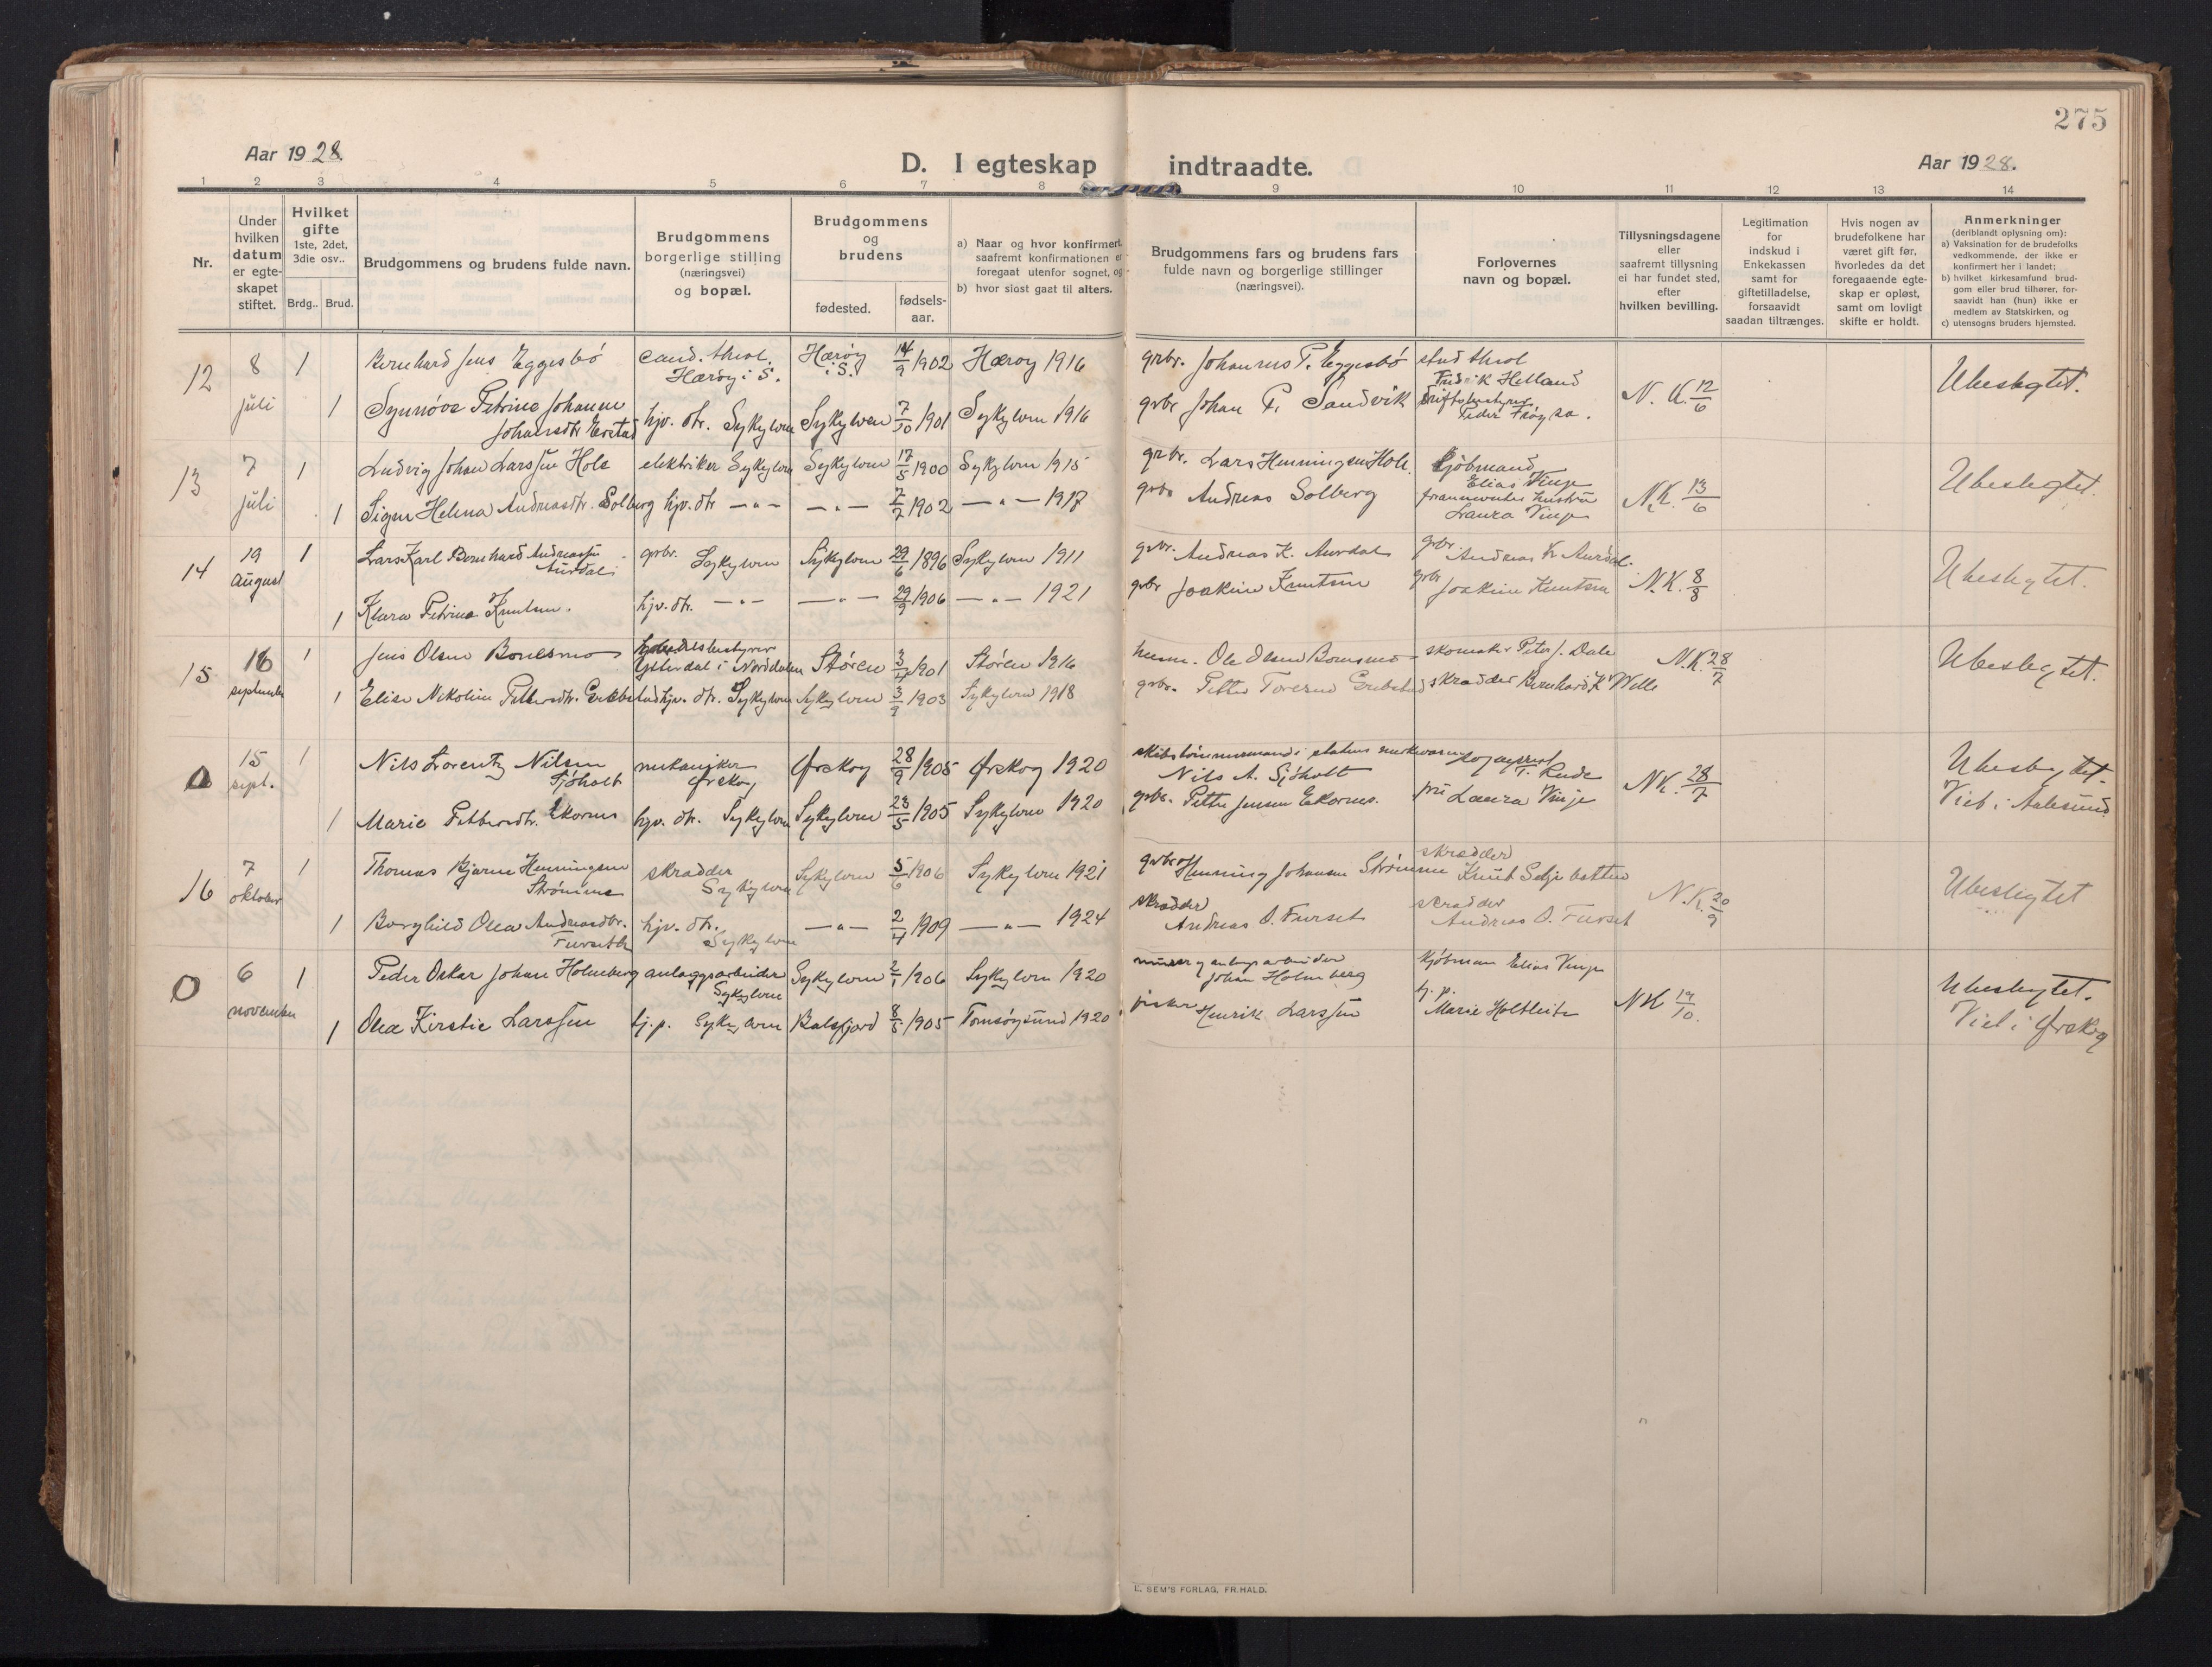 275
Aar 1928.
D. I egteskap indtraadte.
Aar 1928.
1 2 3 4 5 6 7 8 9 10 11 12 13 14
Nr.
Under hvilken datum er egteskapet stiftet.
Hvilket gifte 1ste, 2det, 3die osv..
Brdg.. Brud.
Brudgommens og brudens fulde navn.
Brudgommens borgerlige stilling (næringsvei) og bopæl.
Brudgommens og brudens
fødested.
fødsels-aar.
a) Naar og hvor konfirmert saafremt konfirmationen er foregaat utenfor sognet, og
b) hvor sidst gaat til alters.
Brudgommens fars og brudens fars fulde navn og borgerlige stillinger (næringsvei).
Forlovernes navn og bopæl.
Tillysningsdagene eller saafremt tillysning ei har fundet sted, efter hvilken bevilling.
Legitimation for indskud i Enkekassen samt for giftetilladelse, forsaavidt saadan tiltrænges.
Hvis nogen av brudefolkene har været gift før, hvorledes da det foregaaende egteskap er opløst, samt om lovligt skifte er holdt.
Anmerkninger (deriblandt oplysning om):
a) Vaksination for de brudefolks vedkommende, der ikke er konfirmert her i landet;
b) hvilket kirkesamfund brudgom eller brud tilhører, forsaavidt han (hun) ikke er medlem av Statskirken, og
c) utensogns bruders hjemsted.
12 8 juli 1 Bernhard Jens Eggesbø cand. theol. Hærøy i S. Hærøy i S. 14/9 1902 Hærøy 1916 grbr. Johannes P. Eggesbø stud theol Fredrik Helland N. K. 12/6 Ubeslegtet.
1 Synnøve Petrine Johanne Johansdtr Erstad hjv. dtr. Sykylven Sykylven 7/10 1901 Sykylven 1916 grbr Johan P. Sandvik driftsbestyrer Peder Frøysa.
13 7 juli 1 Ludvig Johan Larssen Hole elektriker Sykylven Sykylven 17/5 1900 Sykylven 1915 grbr. Lars Henningsen Hole. Kjøbmand Elias Vinje N.K. 13/6 Ubeslegtet.
1 Signe Helena Andreasdtr. Solberg hjv. dtr —"— —"— 7/7 1902 —"— 1917 grbr Andreas Solberg hustru Laura Vinje
14 19 August 1 Lars Karl Bernhard Andreassen Aurdal grbr. Sykylven Sykylven 29/6 1896 Sykylven 1911 grbr. Andreas K. Aurdal grbr. Andreas K. Aurdal. N.K. 8/8 Ubeslegtet.
1 Klara Petrina Knutsen. hjv. dtr. —"— —"— 29/9 1906 —"— 1921 grbr Joakim Knutsen grbr Joakim Knutsen
15 16 september 1 Jens Olsen Bonesmo Ytterdal i Norddalen Støren 3/4 1901 Støren 1916 Ole Olsen Bonesmo skomaker Peter J. Dale N.K. 28/7 Ubeslegtet.
1 Elise Nikoline Pettersdtr. Grebstad hjv. dtr. Sykylven Sykylven 3/9 1903 Sykylven 1918 grbr. Petter Toresen Grebstad skradder Bernhard K Velle
0 15 sept. 1 Nils Lorentz Nilsen Sjøholt mekaniker Ørskog Ørskog 28/9 1905 Ørskog 1920 Nils A. Sjøholt sogneprest T. Rude N.K. 28/7 Ubeslegtet. Viet i Aalesund
1 Marie Pettersdtr. Ekornes hjv. dtr. Sykylven Sykylven 23/5 1905 Sykylven 1920 grbr. Petter Jensen Ekornes. fru Laura Vinje
16 7 oktober 1 Thomas Bjarne Henningsen Strømme skradder Sykylven Sykylven 5/6 1906 Sykylven 1921 grbr Henning Johansen Strømme skradder Knut Seljebotten N.K. 20/9 Ubeslegtet
1 Borghild Olea Andreasdtr. Furseth hjv. dtr. Sykylven —"— 2/4 1909 —"— 1924 skradder Andreas O. Furset skradder Andreas O. Furset
0 6 november 1 Peder Oskar Johan Holmberg anlægsarbeider Sykylven Sykylven 2/1 1906 Sykylven 1920 murer og anlægsarbeider Johan Holmberg Kjøbman Elias Vinje N.K. 19/10. Ubeslegtet. Viet i Ørskog
1 Olea Kirstie Larssen tj. p. Sykylven Balsfjord 8/5 1905 Tomsøysund 1920 fisker Henrik Larssen tj. p. Marie Holtleite
E. SEM'S FORLAG, FR.HALD.